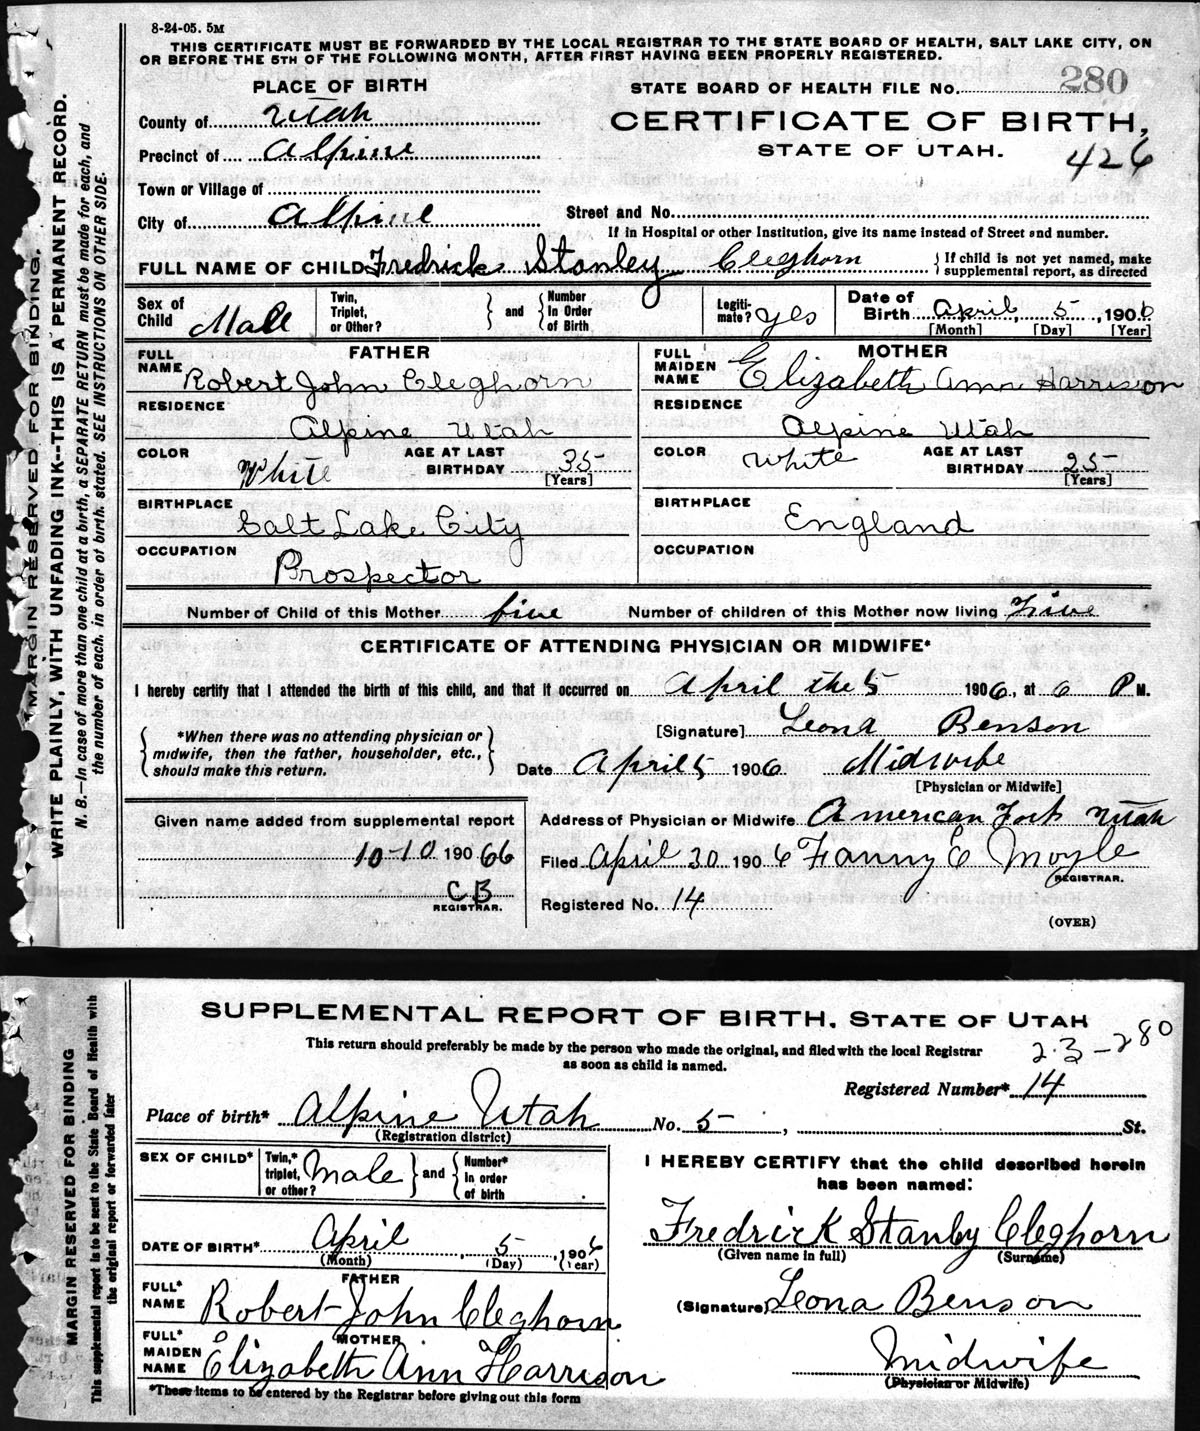 8-24-05. 5M
THIS CERTIFICATE MUST BE FORWARDED BY THE LOCAL REGISTRAR TO THE STATE BOARD OF HEALTH, SALT LAKE CITY, ON
OR BEFORE THE 5TH OF THE FOLLOWING MONTH, AFTER FIRST HAVING BEEN PROPERLY REGISTERED.
MARGIN RESERVED FOR BINDING.
WRITE PLAINLY, WITH UNFADING INK--THIS IS A PERMANENT RECORD.
N. B.—In case of more than one child at a birth, a SEPARATE RETURN must be made for each, and
the number of each, in order of birth, stated. SEE INSTRUCTIONS ON OTHER SIDE.
PLACE OF BIRTH
STATE BOARD OF HEALTH FILE No. 280
County of Utah
CERTIFICATE OF BIRTH,
Precinct of Alpine
STATE OF UTAH. 426
Town or Village of
City of Alpine
Street and No.
If in Hospital or other Institution, give its name instead of Street and number.
FULL NAME OF CHILD Fredrick Stanley Cleghorn { If child is not yet named, make
supplemental report, as directed
Sex of Child Male
Twin, Triplet, or Other? } and { Number In Order of Birth
Legiti-mate? yes
Date of Birth April 5, 1906
[Month] [Day] [Year]
FATHER
FULL NAME Robert John Cleghorn
RESIDENCE
Alpine Utah
COLOR White AGE AT LAST BIRTHDAY 35
[Years]
BIRTHPLACE
Salt Lake City
OCCUPATION
Prospector
MOTHER
FULL MAIDEN NAME Elizabeth Ann Harrison
RESIDENCE
Alpine Utah
COLOR White AGE AT LAST BIRTHDAY 25
[Years]
BIRTHPLACE
England
OCCUPATION
Number of Child of this Mother five Number of children of this Mother now living Five
CERTIFICATE OF ATTENDING PHYSICIAN OR MIDWIFE*
I hereby certify that I attended the birth of this child, and that it occurred on April the 5 1906, at 6 P M.
{ *When there was no attending physician or
midwife, then the father, householder, etc.,
should make this return. }
[Signature] Leona Benson
Date April 5 1906 Midwife
[Physician or Midwife]
Given name added from supplemental report
10-10 190 66
CB
REGISTRAR.
Address of Physician or Midwife American Fork Utah
Filed April 30 1906 Fanny E Moyle
REGISTRAR.
Registered No. 14
(OVER)
MARGIN RESERVED FOR BINDING
This supplemental report is to be sent to the State Board of Health with
the original report or forwarded later
SUPPLEMENTAL REPORT OF BIRTH, STATE OF UTAH
This return should preferably be made by the person who made the original, and filed with the local Registrar
as soon as child is named.
23-280
Registered Number* 14
Place of birth* Alpine Utah No. 5, St.
(Registration district)
SEX OF CHILD* Twin,* triplet, or other? Male } and { Number* in order of birth
DATE OF BIRTH* April, 5, 1906
(Month) (Day) (Year)
FATHER
FULL* NAME Robert John Cleghorn
MOTHER
FULL* MAIDEN NAME Elizabeth Ann Harrison
*These items to be entered by the Registrar before giving out this form
I HEREBY CERTIFY that the child described herein
has been named:
Fredrick Stanley Cleghorn
(Given name in full) (Surname)
(Signature) Leona Benson
Midwife
(Physician or Midwife)